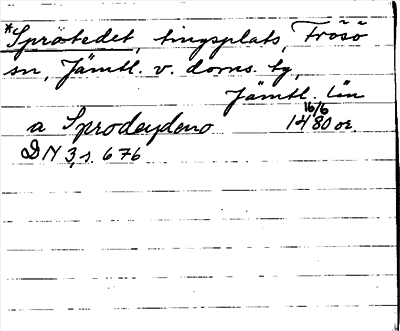 *Sprötedet, tingsplats, Frösö
sn, Jämtl. v. doms. tg,
Jämtl. län
a Sprodeydeno 16/6 1480 or.
DN 3, s. 676